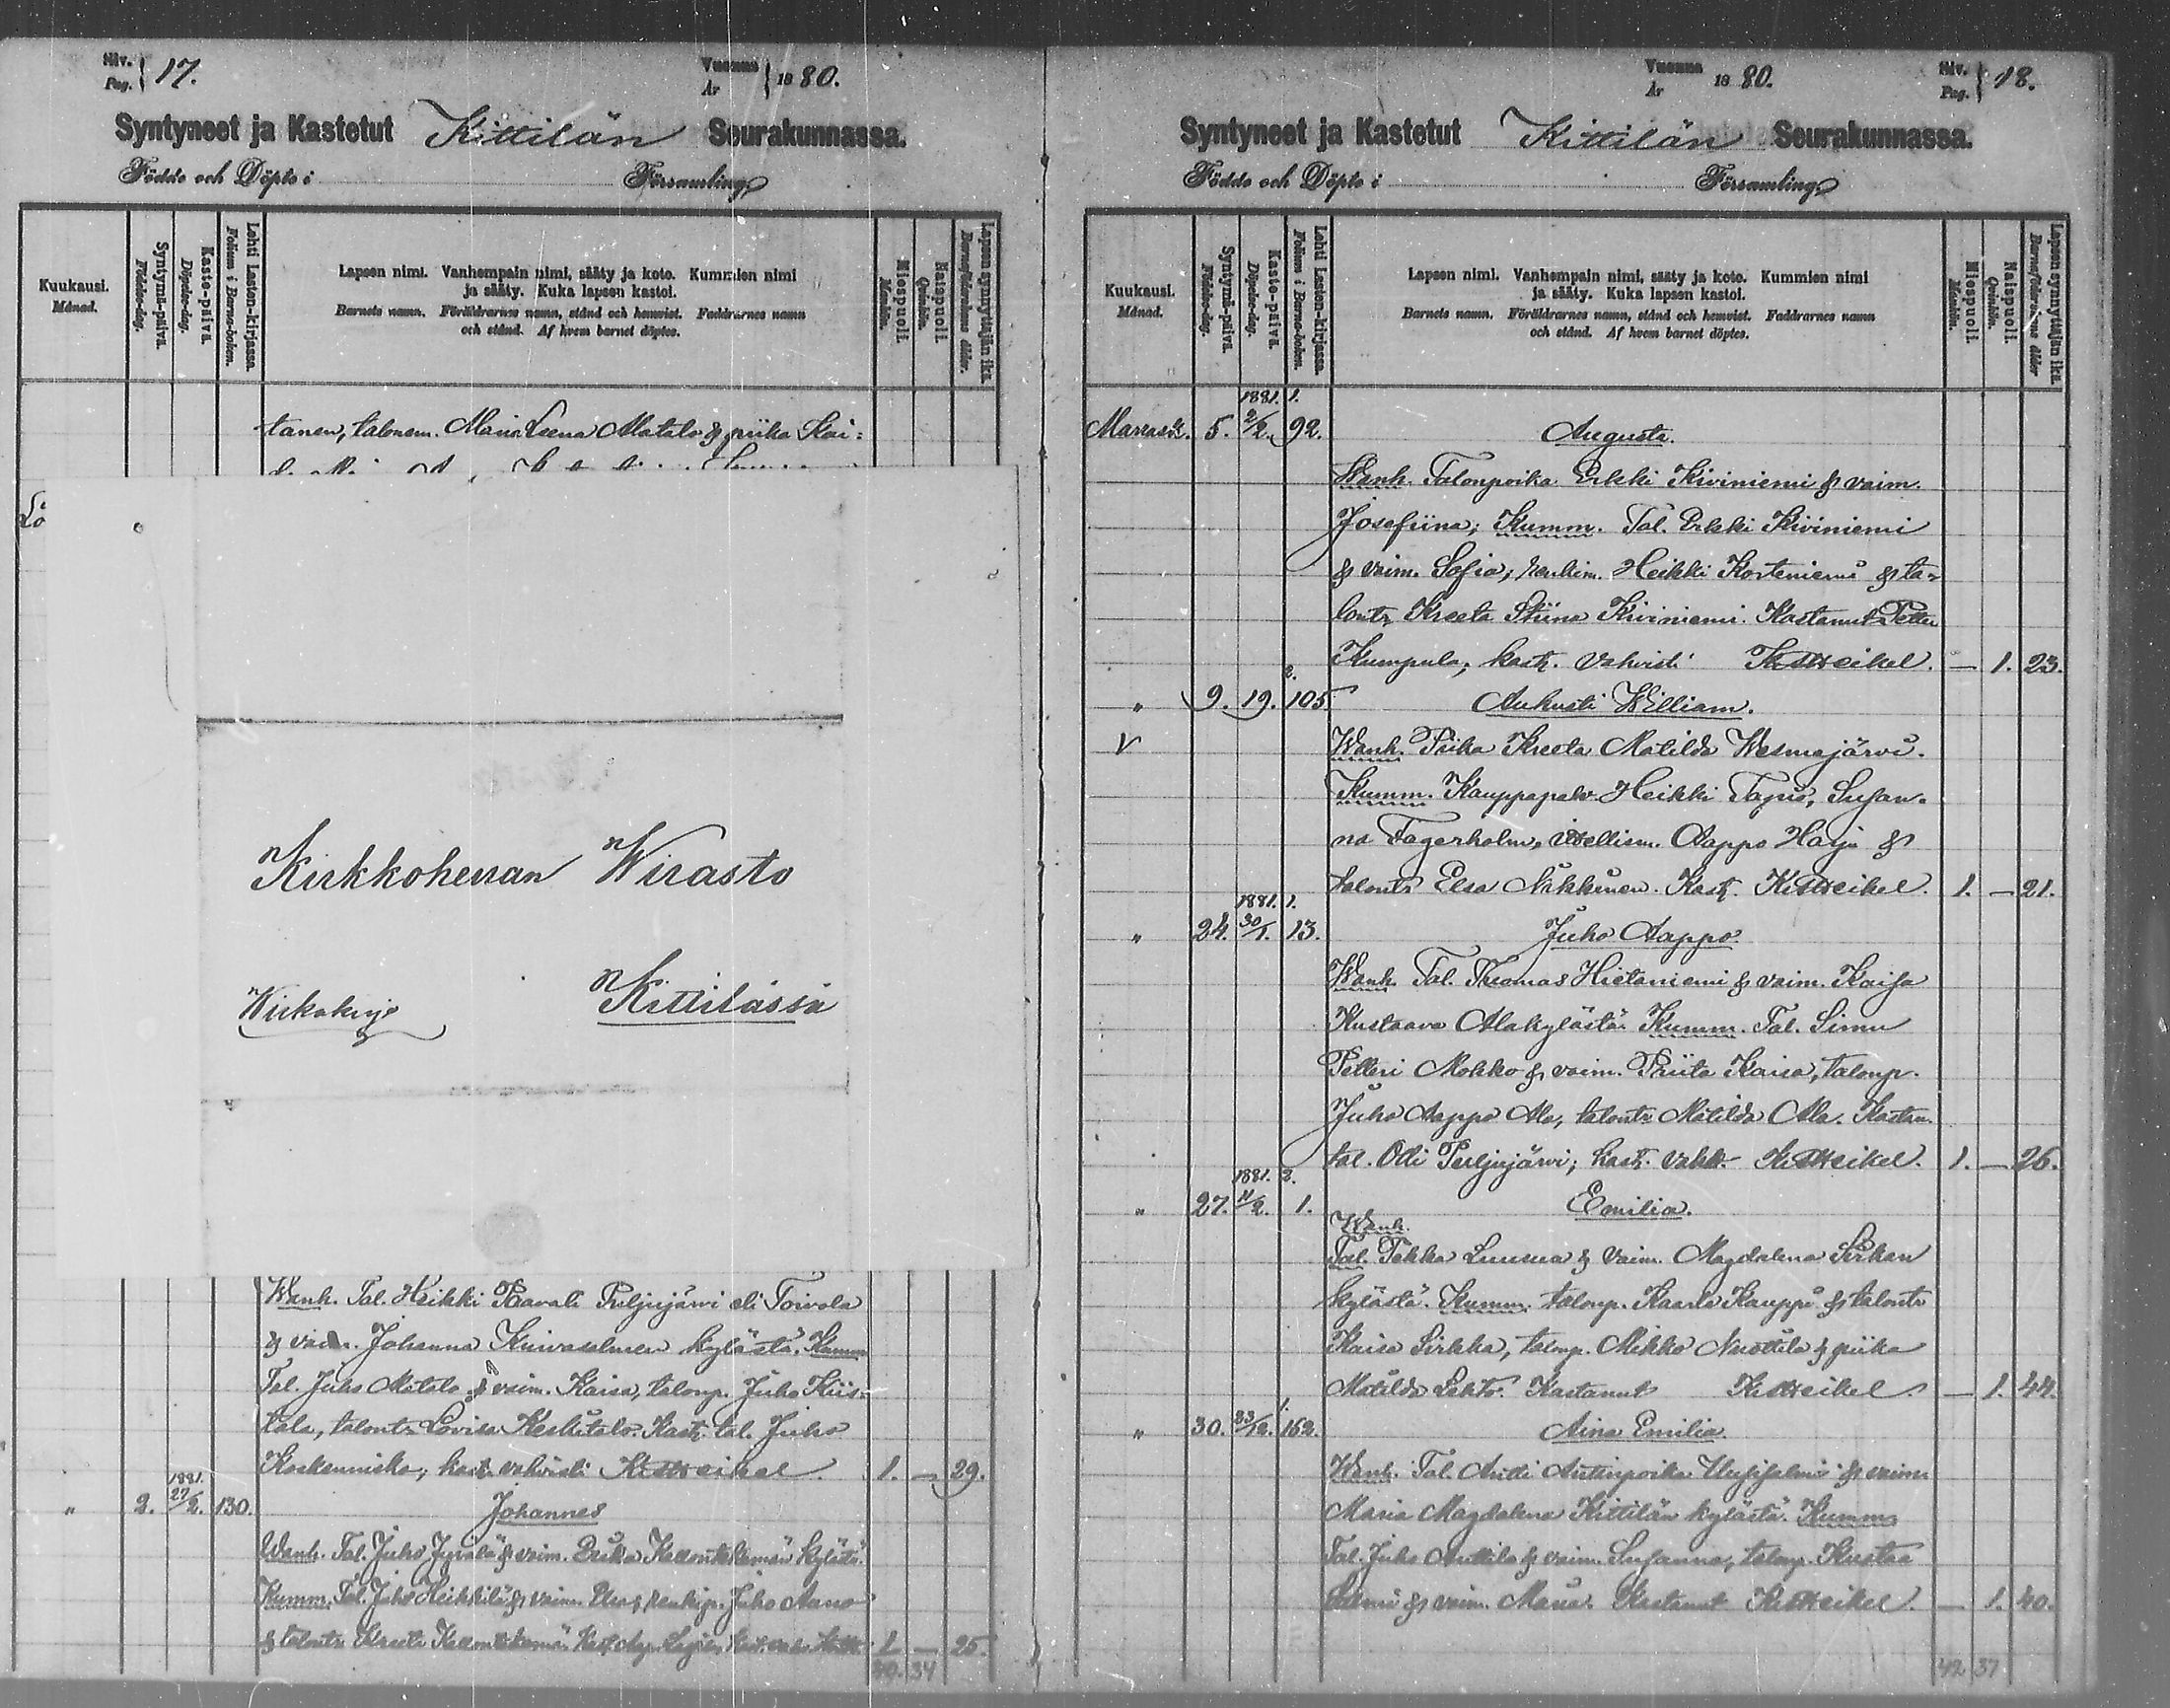 Siv. Pag. 17.
Vuonna År 1880.
Syntyneet ja Kastetut Kittilän Seurakunnassa.
Födde och Döpte i Församling
Kuukausi. Månad.
Syntymä-päivä. Födelse-dag.
Kaste-päivä. Döpelse-dag.
Lehti Lasten-kirjassa. Folium i Barna-boken.
Lapsen nimi. Vanhempain nimi, sääty ja koto. Kummien nimi
ja sääty. Kuka lapsen kastoi.
Barnets namn. Föräldrarnes namn, stånd och hemvist. Faddrarnes namn
och stånd. Af hvem barnet döptes.
Miespuoli. Mankön.
Naispuoli. Qvinkön.
Lapsen synnyttäjän ikä. Barnaföderskans ålder.
tanen, talonem. Maria Leena Matala & piika
Lo
Kirkkoherran Wirasto
Kittilässä
Wirkakirje
Wanh. Tal. Heikki Paavali Puljujärvi eli Toivola
& vaim. Johanna Kinisaelmen kylästä. Kumm
Tal. Juho Matala & vaim. Kaisa, talonp. Juho Kiis-
tala, talontr. Lovisa Keskitalo. Kast. tal. Juho
Koskenniska; kast. vahvisti Kr Heikel. 1. — 29.
" 2. 1881. 27/2. 130. Johannes
Wanh. Tal. Juho Jyrälä & vaim. Brita Kelontekemän kylästä.
Kumm. Tal. Juho Heikkilä & vaim. Elsa, renkip. Juho Aano
& talontr. Kreeta 1 — 25.
40. 34
Vuonna År 1880.
Siv. Pag. 18.
Syntyneet ja Kastetut Kittilän Seurakunnassa.
Födde och Döpte i Församling
Kuukausi. Månad.
Syntymä-päivä. Födelse-dag.
Kaste-päivä. Döpelse-dag.
Lehti Lasten-kirjassa. Folium i Barna-boken.
Lapsen nimi. Vanhempain nimi, sääty ja koto. Kummien nimi
ja sääty. Kuka lapsen kastoi.
Barnets namn. Föräldrarnes namn, stånd och hemvist. Faddrarnes namn
och stånd. Af hvem barnet döptes.
Miespuoli. Mankön.
Naispuoli. Qvinkön.
Lapsen synnyttäjän ikä. Barnaföderskans ålder
Marrask. 5. 1881. 2/2. 1. 92. Augusta.
Wanh. Talonpoika Erkki Kiviniemi & vaim.
Josefiina; Kumm. Tal. Erkki Kiviniemi
& vaim. Sofia; renkim. Heikki Korteniemi & ta-
lontr. Kreeta Stiina Kiviniemi. Kastanut Petter
Kumpula; kast. vahvisti Kr Heikel. — 1. 23.
" 9. 19. 2. 105. Aukusti William.
V Wanh. Piika Kreeta Matilda Wesmajärvi.
Kumm. Kauppapalv. Heikki Tapio, Susan-
na Fagerholm, itsellism. Aappo Harju &
talontr Elsa Näkkinen. Kast. Kr Heikel. 1. — 21.
" 24. 1881. 30/1. 1. 13. Juho Aappo.
Wanh. Tal. Thomas Hietaniemi & vaim. Kaisa
Kustaava Alakylästä. Kumm. Tal. Simu
Petteri Mokko & vaim. Priita Kaisa, talonp.
Juho Aappo Ala, talontr Matilda Ala. Kastan.
tal. Olli Puljujärvi; kast. vahv. Kr Heikel. 1. — 26.
" 27. 1881. 11/2. 2. 1. Emilia.
Wanh.
Tal. Pekka Luusua & vaim. Magdalena Sirkan
kylästä. Kumm. talonp. Kaarlo Kauppi & talontr
Kaisa Sirkka, talonp. Mikko Nuottila & piika
Matilda Lehto. Kastanut Kr Heikel — 1. 44.
" 30. 23/12. 1. 162. Aina Emilia.
Wanh. Tal. Antti Antinpoika Uusisalmi & vaim.
Maria Magdalena Kittilän kylästä. Kumm.
Tal. Juho Anttila & vaim. Susanna, talonp. Kustaa
Salmi & vaim. Maria. Kastanut Kr Heikel. — 1. 40.
42 37